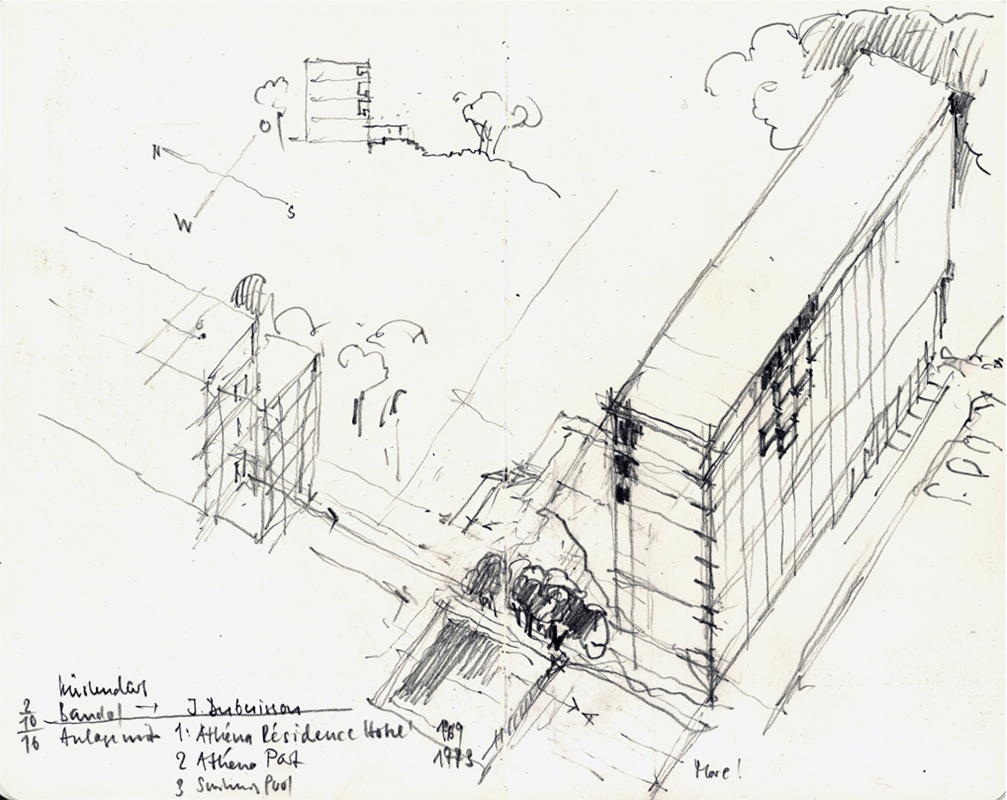 O
N
S
W
P.
2
10
16
Bandol → J. Dubuisson
Anlage mit 1: Athéna Résidence Hotel 1969
2 Athéna Port 1973
3 Swimming Pool
More!